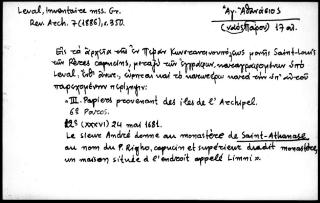 Leval, inventaire mss. Gr.
Rev. Arch. 7 (1886), σ. 350.
Ἁγ. Ἀθανάσιος
(νῆσος Πάρου) 17 αἰ.
Εἰς τὰ ἀρχεῖα τῆς ἐν Πέραν Κωνσταντινουπόλεως μονῆς Saint-Louis
των Pères capucins, μεταξὺ τῶν ἐγγράφων, καταγραφομένων ὑπὸ
Leval, ἔνθ' ἄνωτ., εὕρηται καὶ τὸ κατωτέρω κατὰ τὴν ὑπ' αὐτοῦ
παρεχομένην περίληψιν:
« III. Papiers provenant des iles de l'Archipel.
6º Paros.
22º (XXXVI) 24 mai 1681.
Le sieur André donne au monastère de Saint-Athanase
au nom du P. Righo, capucin et supérieur dudit monastère,
un maison située à l'endroit appelé Limni ».